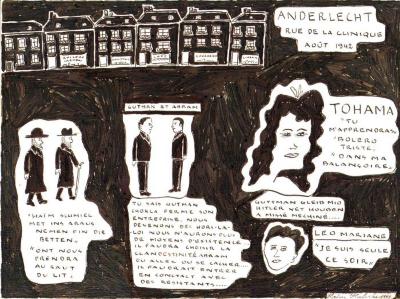 ANDERLECHT
RUE DE LA CLINIQUE
AOÛT 1942
GUTMAN ET ABRAM
TOHAMA
"TU
M'APPRENDRAS
"BOLERO
TRISTE,
"DANS MA
BALANÇOIRE,
MET INS ARAUS
NEHMEN FIN DIE
BETTEN.
"ONT NOUS
PRENDRA
AU SAUT
DU LIT.
TU SAIS GUTMAN
FERME SON
ENTREPRISE. NOUS
DEVENONS DES HORS-LA
LOI NOUS N'AURONS PLUS
DE MOYENS D'EXISTENCE
IL FAUDRA CHOISIR LA
CLANDESTINITÉ ABRAM
OU ALLER OU SE CACHER...
IL FAUDRAIT ENTRER
EN CONTACT AVEC
DES RESISTANTS....
GUTTMAN GLEIB MIO
HITLER VET HOUBEN
A MISSE MECHINE....
LEO MARIANE
"JE SUIS SEULE
CE SOIR"